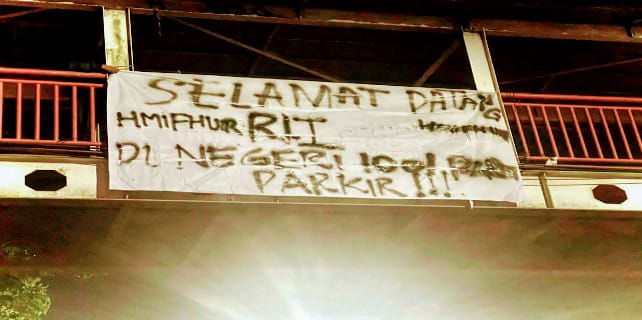 SELAMAT DATANG
HMIFHUP RIT
DI NEGERI 1001
PARKIR!!!